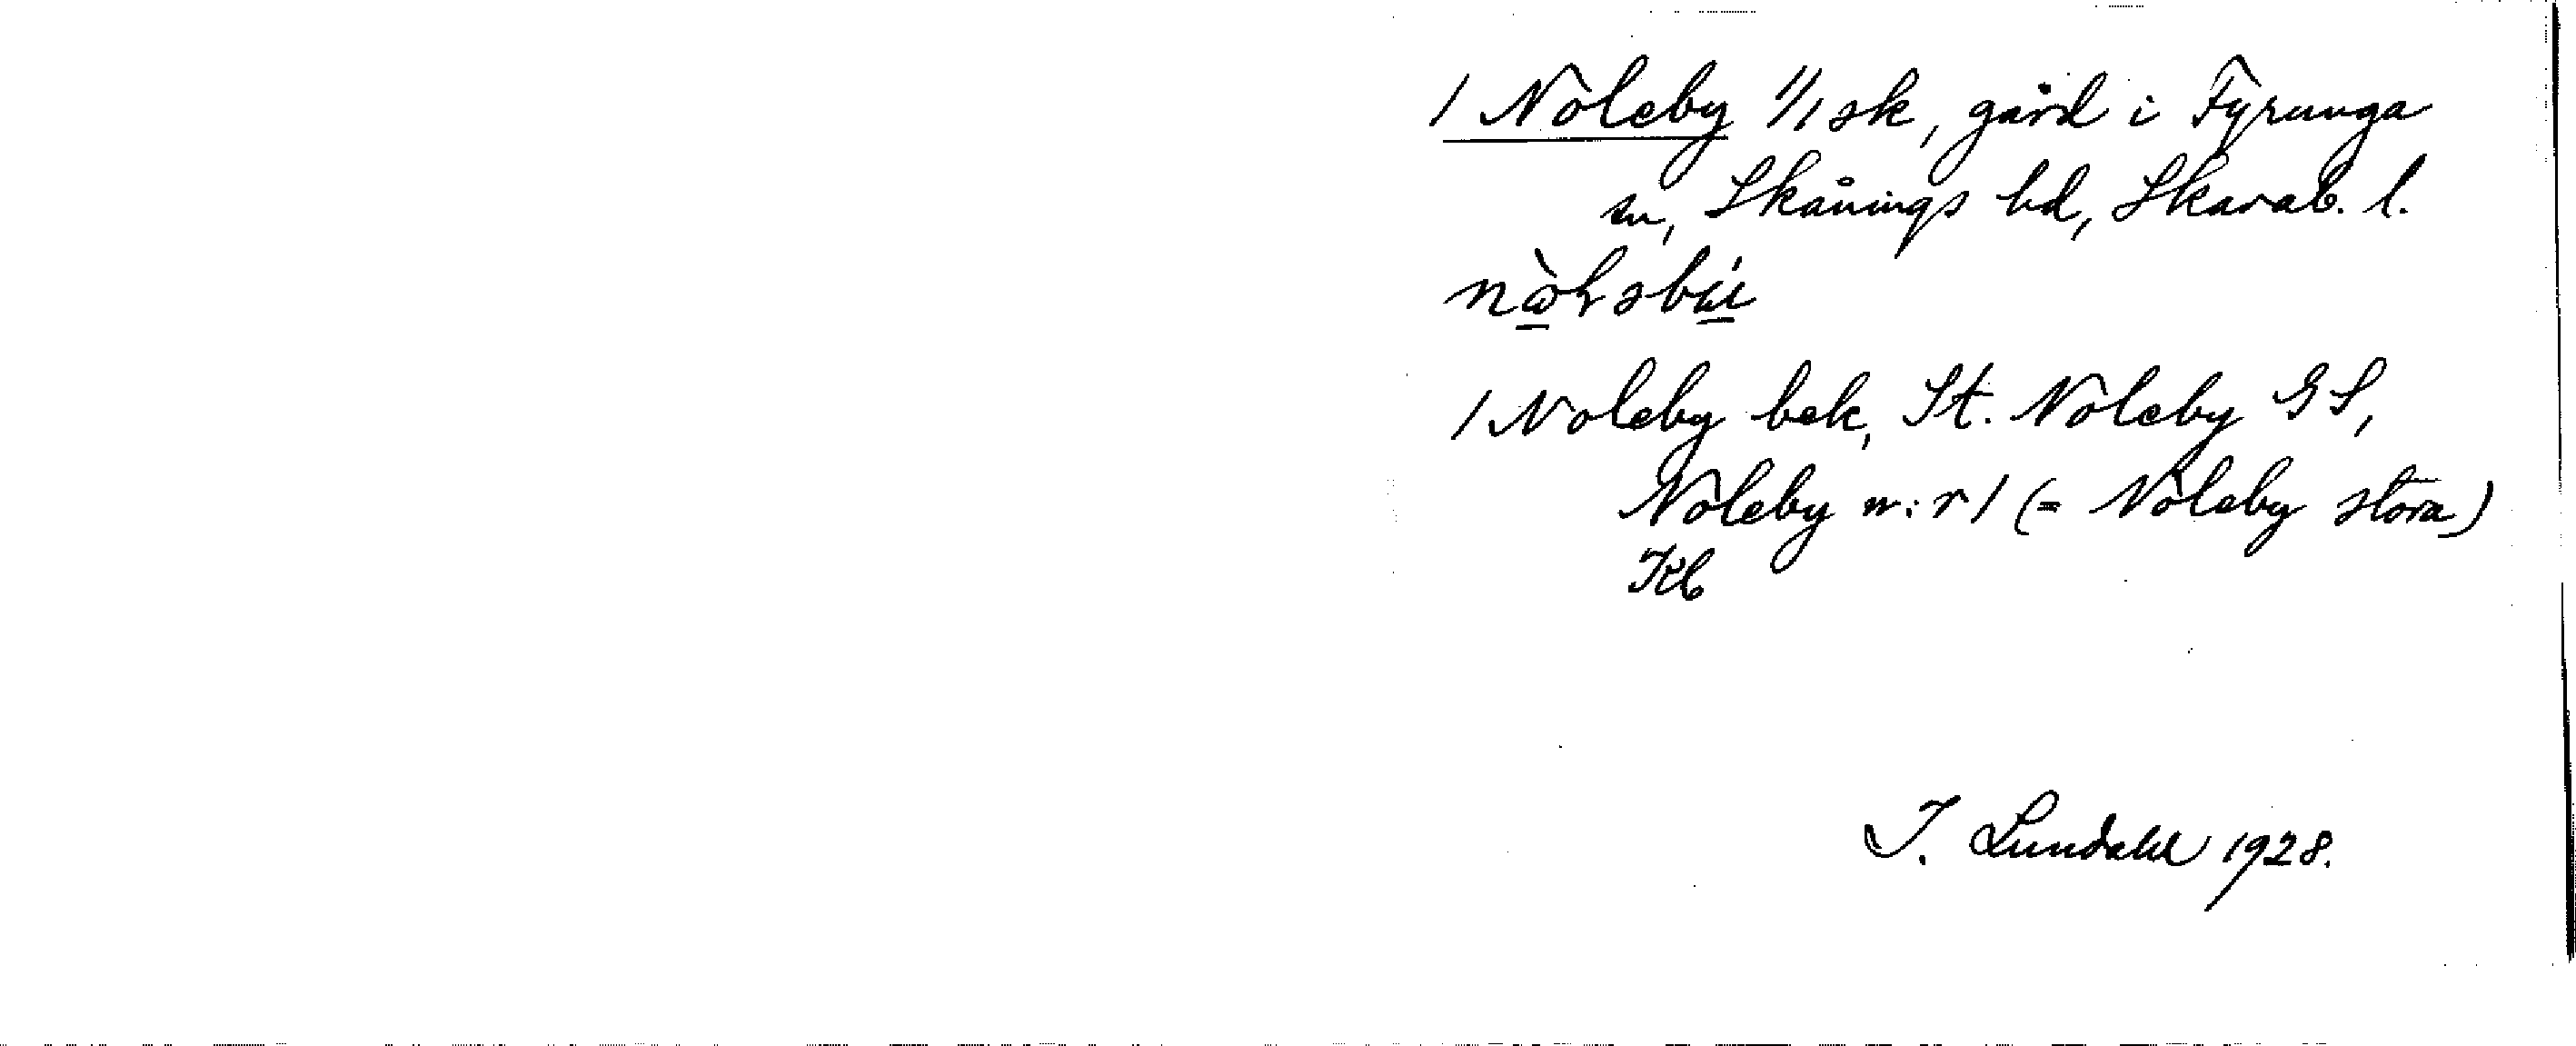 1 Noleby 1/1 sk, gård i Fyrunga
sn, Skånings hd, Skarab. l.
1 Noleby bek, St. Noleby GS,
Noleby n:r 1 (= Noleby stora)
Kb
I. Lundahl 1928.